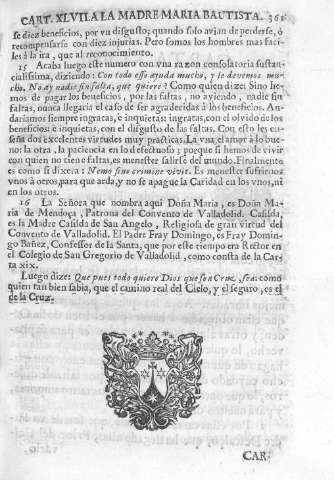 CART. XLVII. A LA MADRE MARIA BAUTISTA. 361
se diez beneficios, por vn disgusto; quando solo avian de perderse, ò
recompensarse con diez injurias. Pero somos los hombres mas faci-
les à la ira, que al reconocimiento.
15 Acaba luego este numero con vna razon consolatoria sustan-
cialissima, diziendo: Con todo esso ayuda mucho, y le devemos mu-
cho. No ay nadie sin falta, què quiere? Como quien dize: Sino he-
mos de pagar los beneficios, por las faltas, no aviendo, nadie sin
faltas, nunca llegaria el caso de ser agradecidas à los beneficios. An-
dariamos siempre ingratas, è inquietas: ingratas, con el olvido de los
beneficios: è inquietas, con el disgusto de las faltas. Con esto les en-
seña dos excelentes virtudes muy practicas. La vna el amor à lo bue-
no: la otra, la paciencia en lo defectuoso; porque si hemos de vivir
con quien no tiene faltas, es menester salirse del mundo. Finalmente,
es como si dixera: Nemo sine crimine vivit. Es menester sufrirnos
vnos à otros, para que arda, y no se apague la Caridad en los vnos, ni
en los otros.
16 La Señora que nombra aqui Doña Maria, es Doña Ma-
ria de Mendoça, Patrona del Convento de Valladolid. Casilda,
es la Madre Casilda de San Angelo, Religiosa de gran virtud del
Convento de Valladolid. El Padre Fray Domingo, es Fray Domin-
go Bañez, Confessor de la Santa, que por este tiempo era Rector en
el Colegio de San Gregorio de Valladolid, como consta de la Car-
ta xix.
Luego dize: Que pues todo quiere Dios que sea Cruz, sea: como
quien tan bien sabia, que el camino real del Cielo, y el seguro, es el
de la Cruz.
CAR-